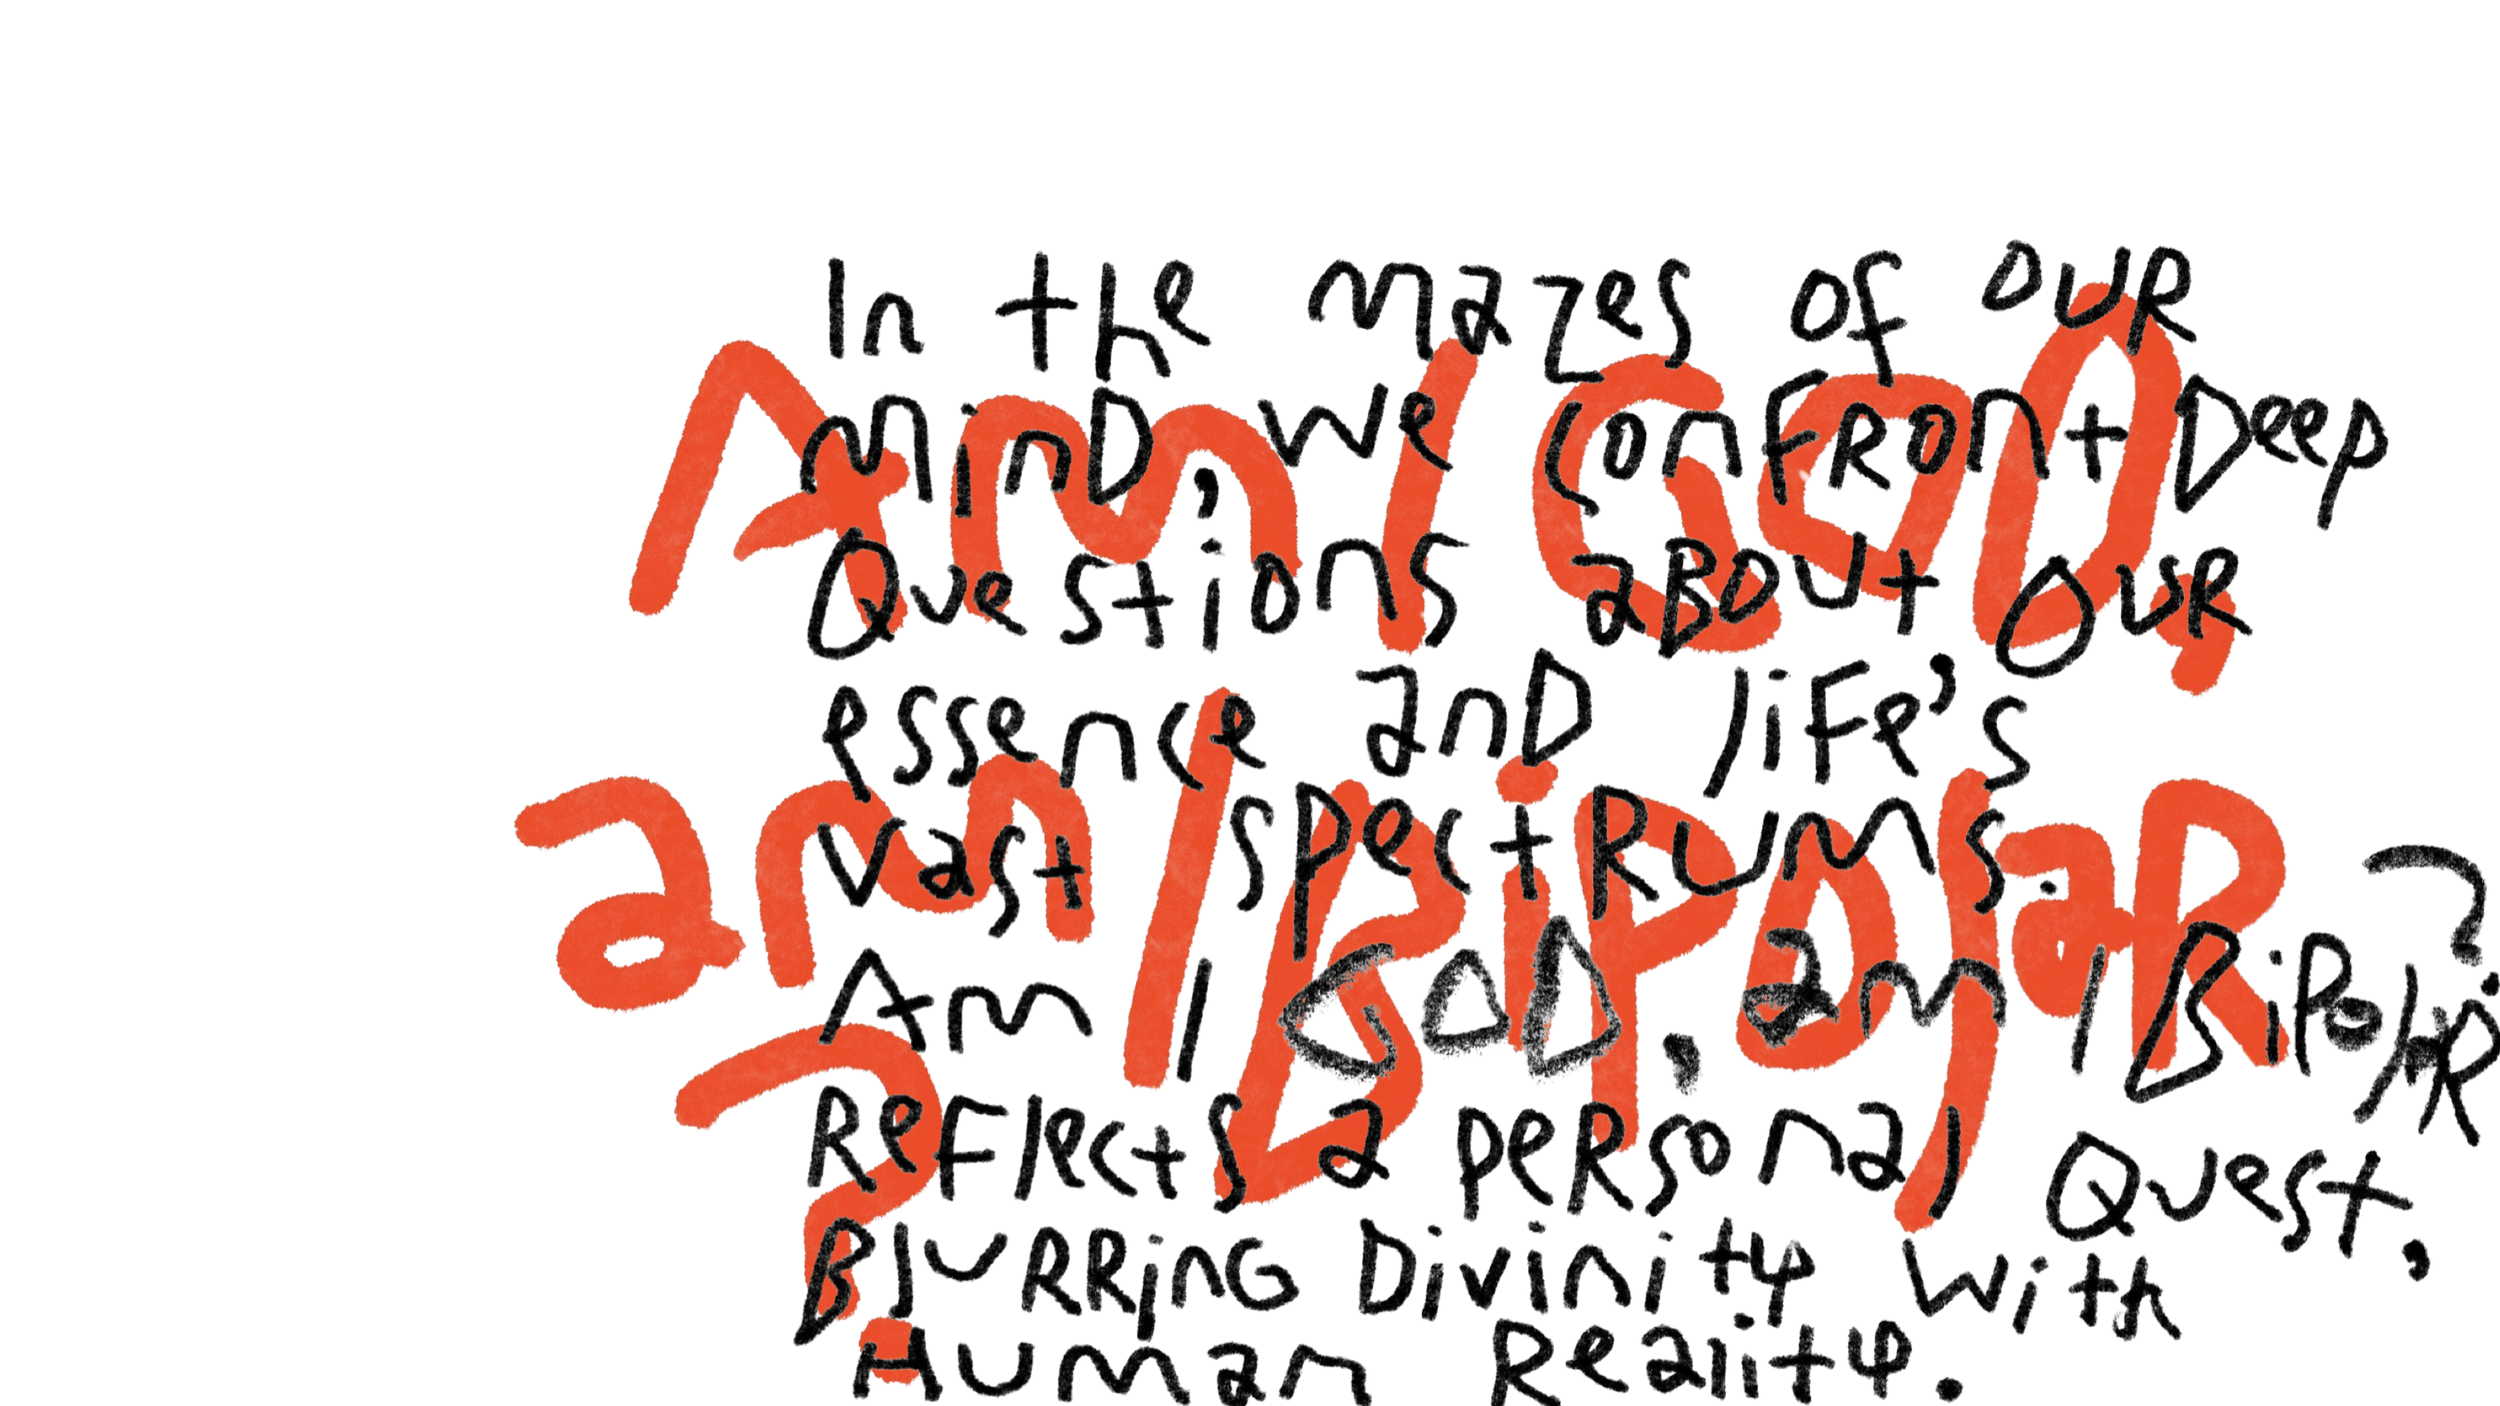 Am I GOD,
am I BiPOlaR
?
In the mazes of OUR
MinD, we conFROnt Deep
Questions aBOut OUR
essence anD liFe's
vast spectRUms.
Am I GOD, am I BiPolaR?
ReFlects a peRsonal Quest,
BlURRinG Divinity with
Human Reality.